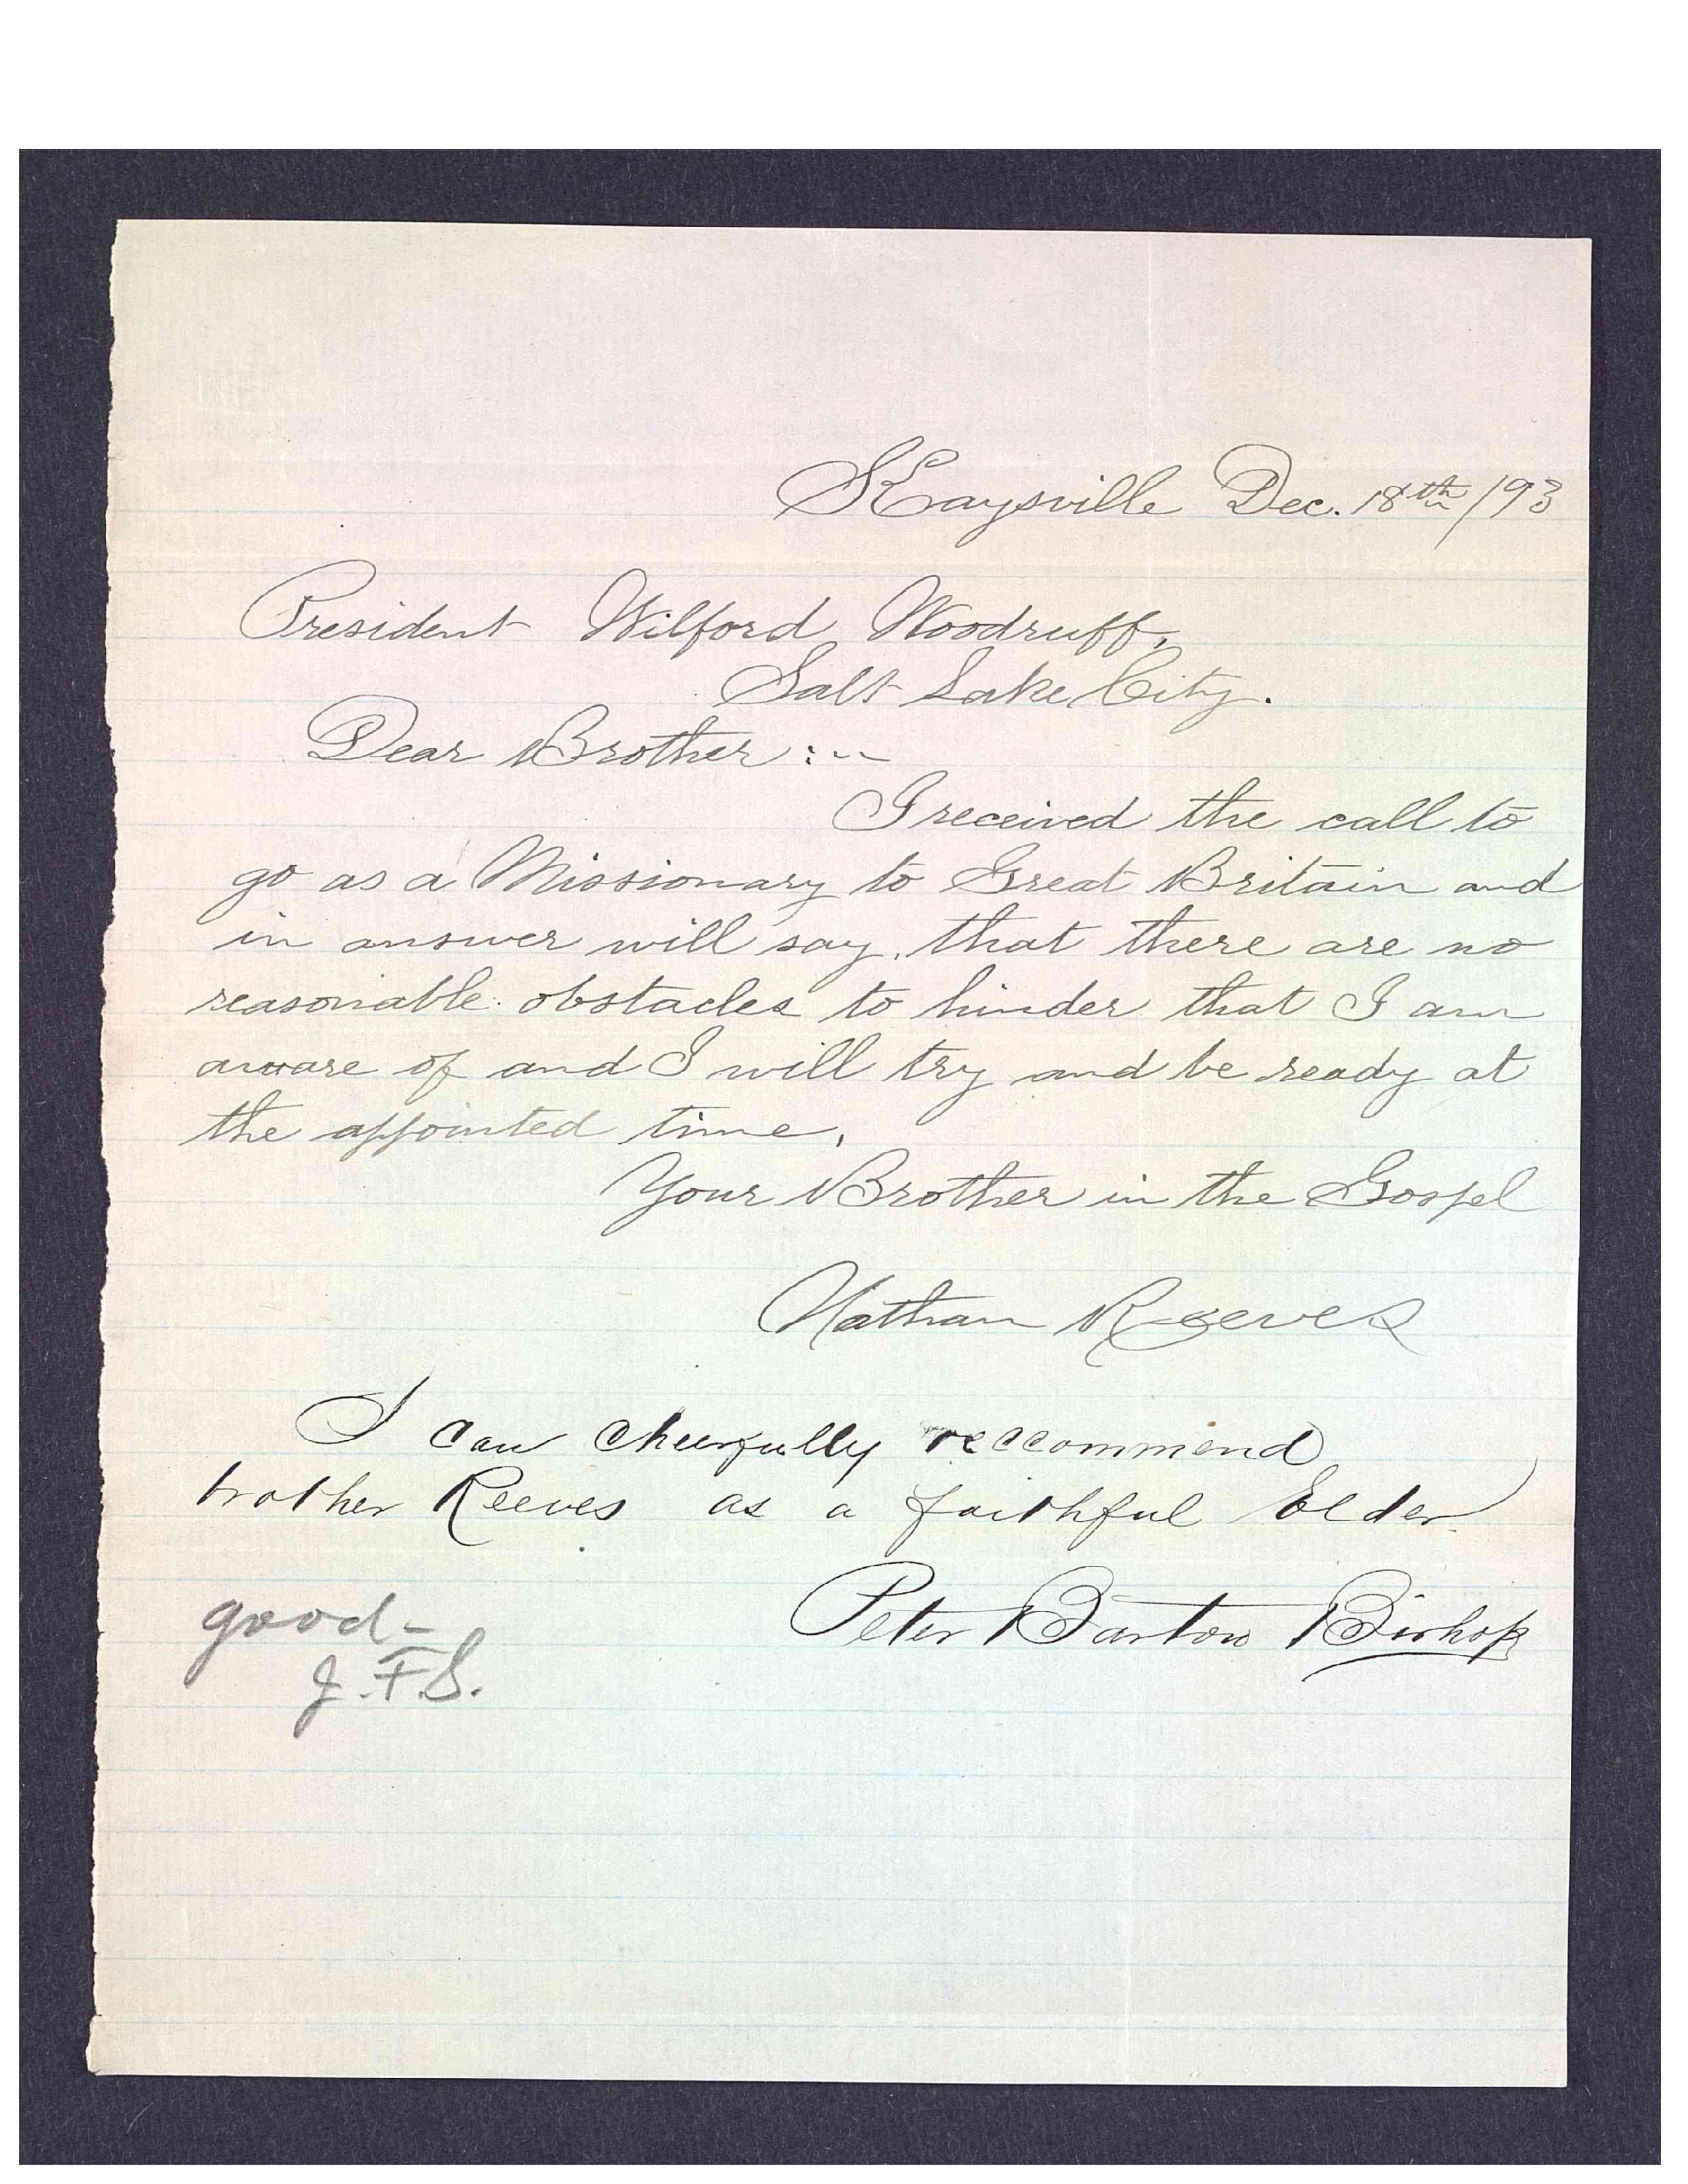 Kaysville Dec. 18th /93
President Wilford Woodruff,
Salt Lake City.
Dear Brother :--
I received the call to
go as a Missionary to Great Britain and
in answer will say, that there are no
reasonable obstacles to hinder that I am
aware of and I will try and be ready at
the appointed time.
Your Brother in the Gospel
Nathan Reeves
I can cheerfully reccommend
brother Reeves as a faithful Elder
Peter Barton Bishop
good-
J.F.S.